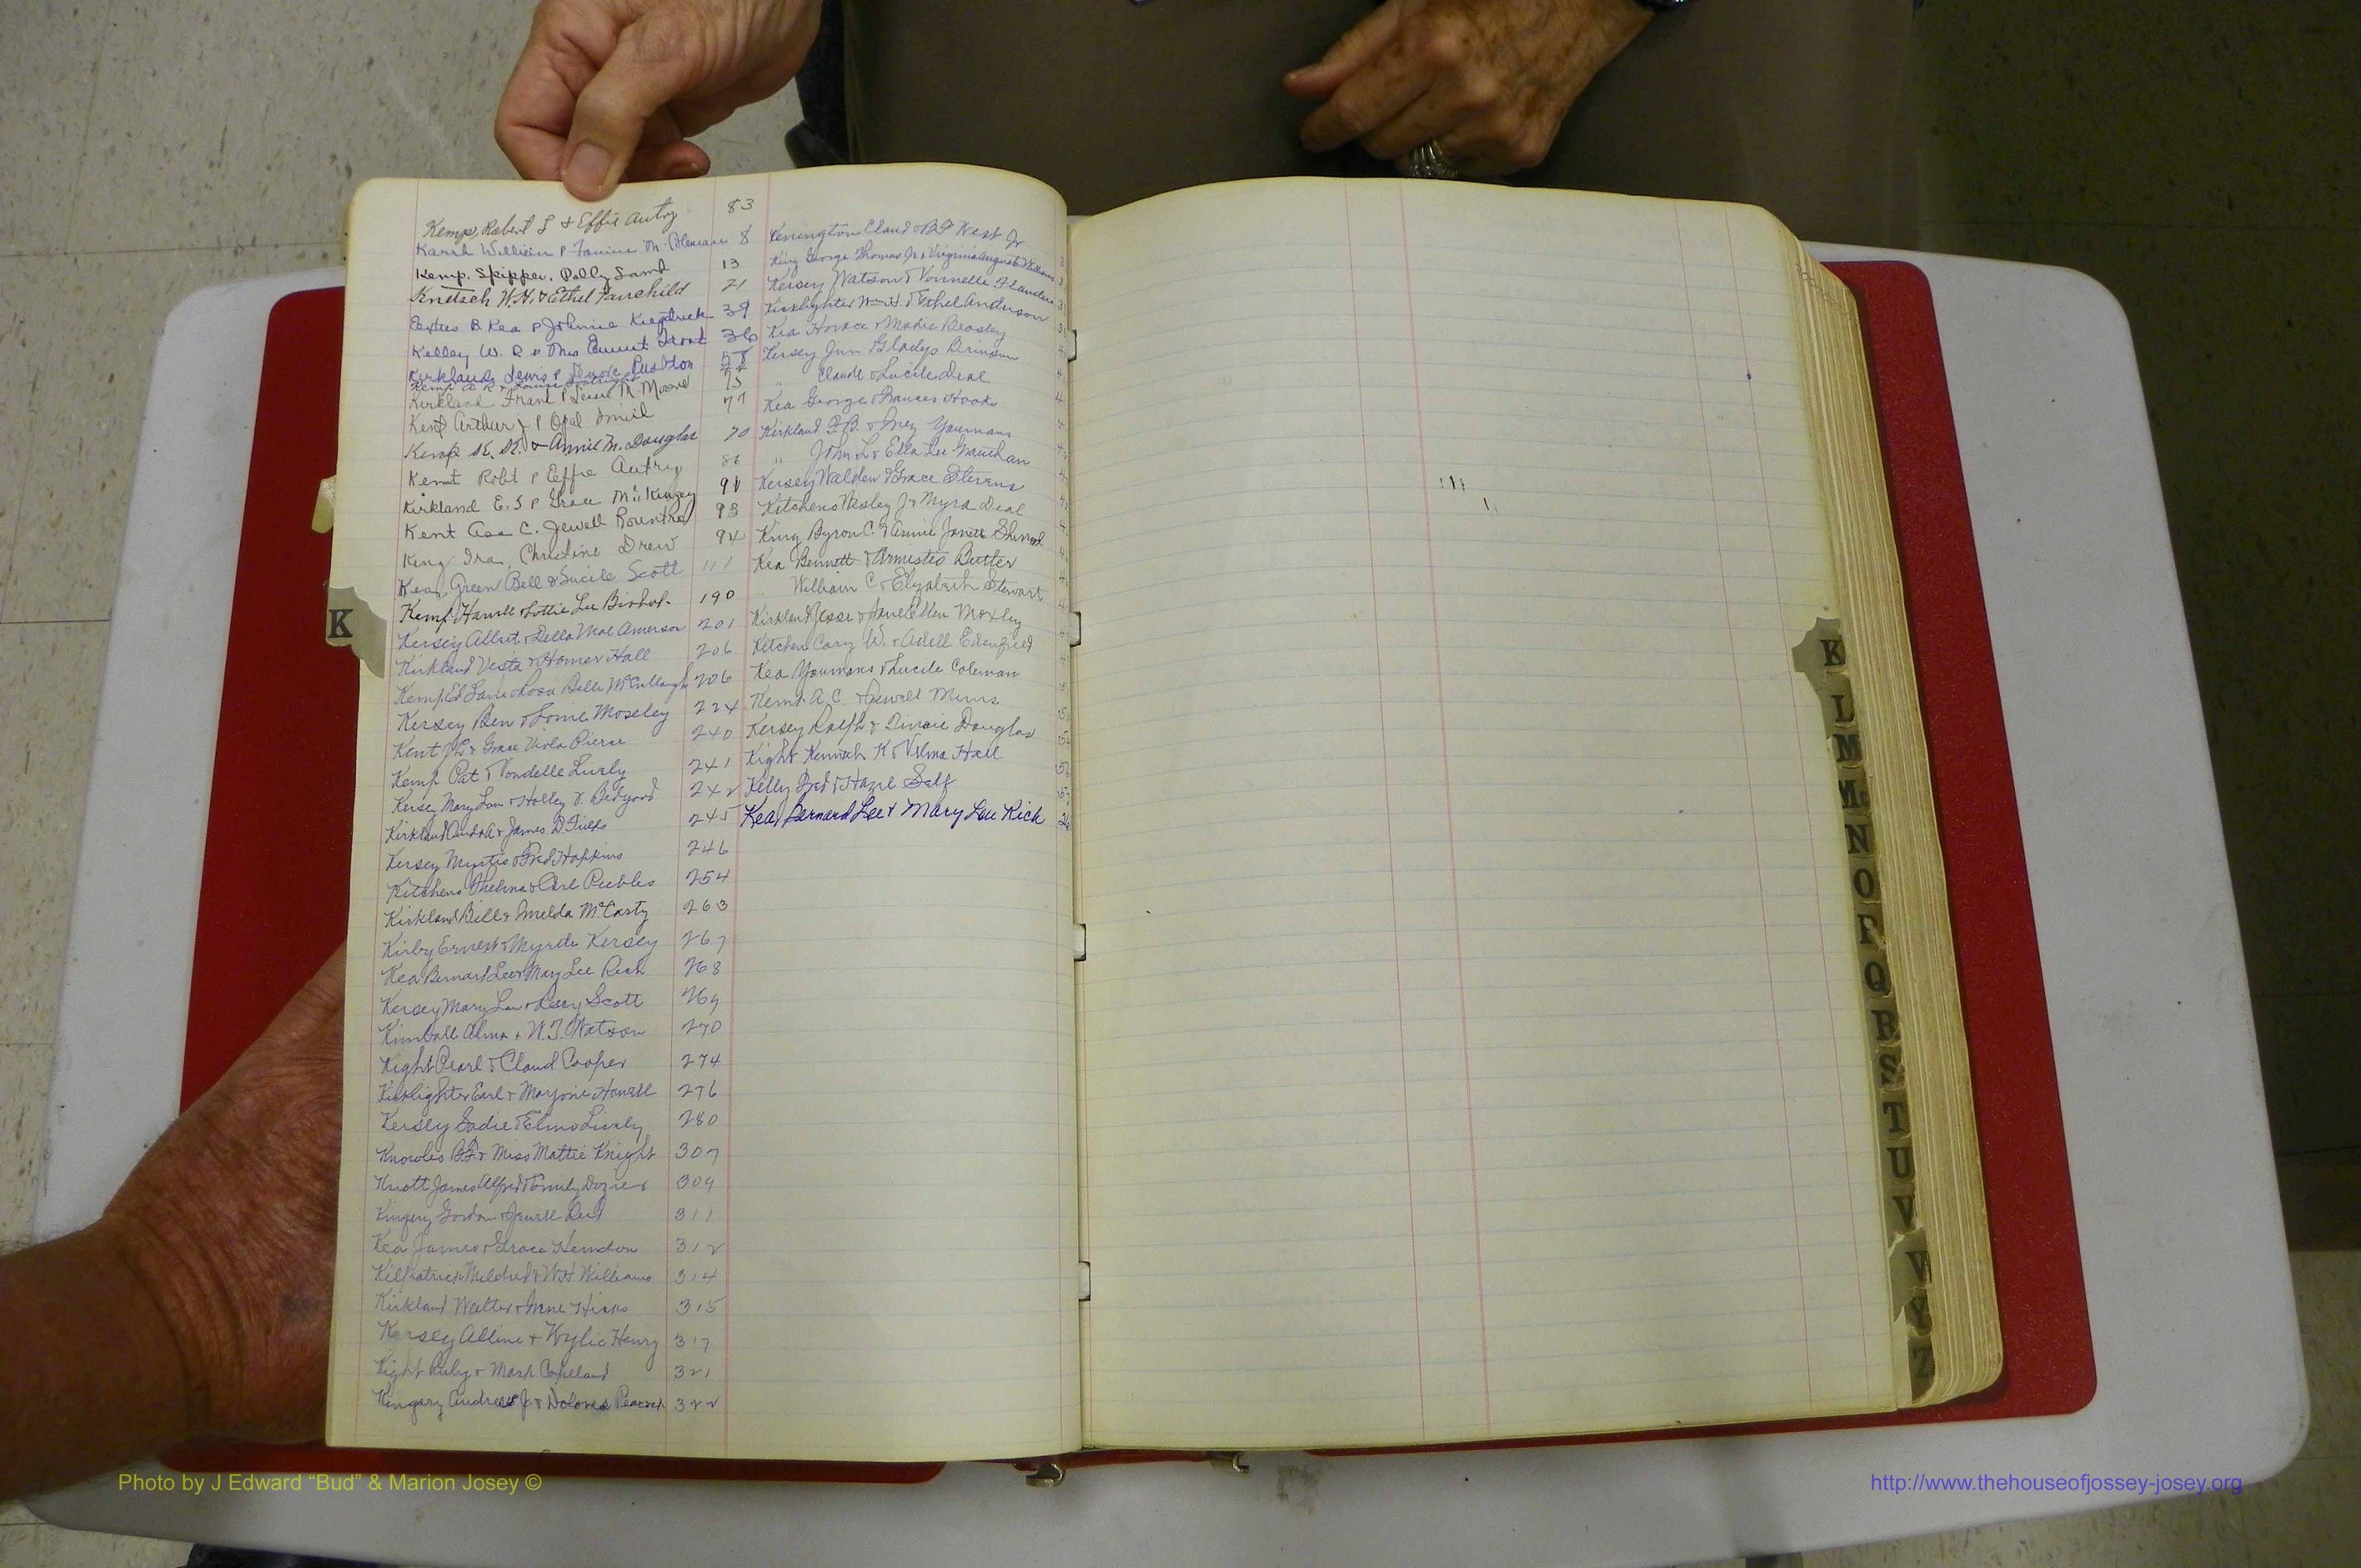 Kemp, Robert L & Effie Autry 83
Karsh William P Fannie M. 8
Kemp. Skipper. Polly Lamb 13
Knetsch W.H. & Ethel Fairchild 21
B Kea P Johnnie 39
Kelley W. R & Mrs Emmit Trout 36
Kirkland, Lewis P Rushton 58
Kemp A R & Louise
Kirkland Frank P M. Moore 75
Kent Arthur J P Opal Smith 77
Kemp K. K. & Annie M. Douglas 70
Kent Robt P Effie Autry 86
Kirkland E. S P Grace McKinzey 91
Kent Asa C. Jewell Rountree 93
King Ira, Christine Drew 94
Kea, Green Bell & Lucile Scott 111
Kemp Harvell & Lottie Lee Bishop 190
Kersey Albert & Della Mae Amerson 201
Kirkland Vesta & Homer Hall 206
Kemp Ed Lane & Rosa Belle McCullough 206
Kersey Ben & Lonie Moseley 224
Kent J.L. & Grace Viola Pierce 240
Kemp Pat & Vondelle Lively 241
Kersey Mary Lou & Holley D. Bedgood 242
Kirkland & James D Fields 245
Kersey Myrtis & Fred Hopkins 246
Kitchens Thelma & Carl Peebles 254
Kirkland Bill & Imelda McCarty 263
Kirby Ernest & Myrtle Kersey 267
Kea Bernard Lee & Mary Lee Rich 268
Kersey Mary Lou & Scott 269
Kimball Alma & W.J. Watson 270
Kight Pearl & Claud Cooper 274
Kirklighter Earl & Marjorie Howell 276
Kersey Sadie & Elmo Lively 280
Knowles B.F. & Miss Mattie Knight 307
Knott James Alfred & Emily Dozier 309
Kingery Gordon & Jewell 311
Kea James & Grace Herndon 312
Kilpatrick Mildred & W.H. Williams 314
Kirkland Walter & Irene Hicks 315
Kersey Alline & Wylie Henry 317
Kight Ruby & Mark Copeland 321
Kingary Andrew J. & Dolores Peacock 322
Kenington Claud & B.F West Jr
King George Thomas Jr & Virginia Augusta Williams
Kersey Watson & Vonnelle Flanders
Kirklighter Wm H. & Ethel Anderson
Kea Horace & Madie Beasley
Kersey Jim Gladys Brinson
" Claude & Lucile Deal
Kea George & Frances Hooks
Kirkland F.B. & Inez Youmans
" John L & Ella Lee
Kersey Walden & Grace Stevens
Kitchens Wesley Jr & Myra Deal
King Byron C. & Annie Janette
Kea Bennett & Armistis Butler
" William C & Elizabeth Stewart
Kirkland Jesse & Jane Ellen Moxley
Kitchen Cary W. & Adell Edenfield
Kea Youmans & Lucile Coleman
Kemp A.C. & Jewell Mims
Kersey Ralph & Douglas
Kight Kenneth K & Velma Hall
Kelly Fred & Hazel Self
Kea, Bernard Lee & Mary Lee Rich
K
K
L
M
Mc
N
O
P
Q
R
S
T
U
V
W
Y
Z
Photo by J Edward “Bud” & Marion Josey ©
http://www.thehouseofjossey-josey.org